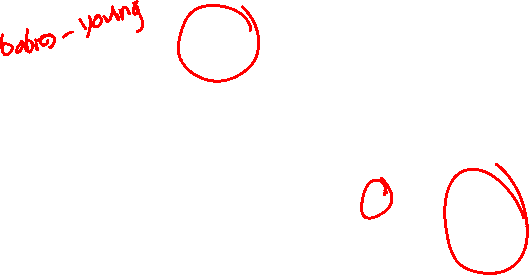 babies - young